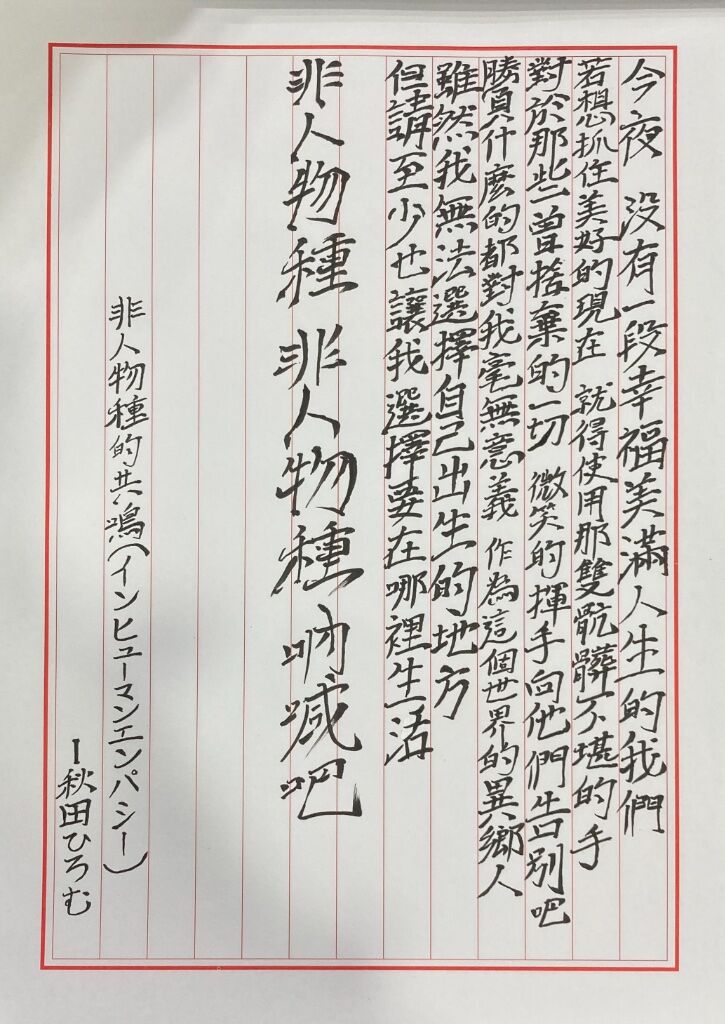 今夜 沒有一段幸福美滿人生的我們
若想抓住美好的現在 就得使用那雙骯髒不堪的手
對於那些曾捨棄的一切 微笑的揮手向他們告別吧
勝負什麼的都對我毫無意義 作為這個世界的異鄉人
雖然我無法選擇自己出生的地方
但請至少也讓我選擇要在哪裡生活
非人物種 非人物種 吶喊吧
非人物種的共鳴(インヒューマンエンパシー)
ー秋田ひろむ